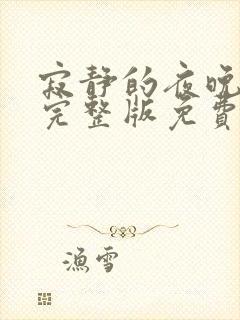 寂静的夜晚
完整版免費
漁雪